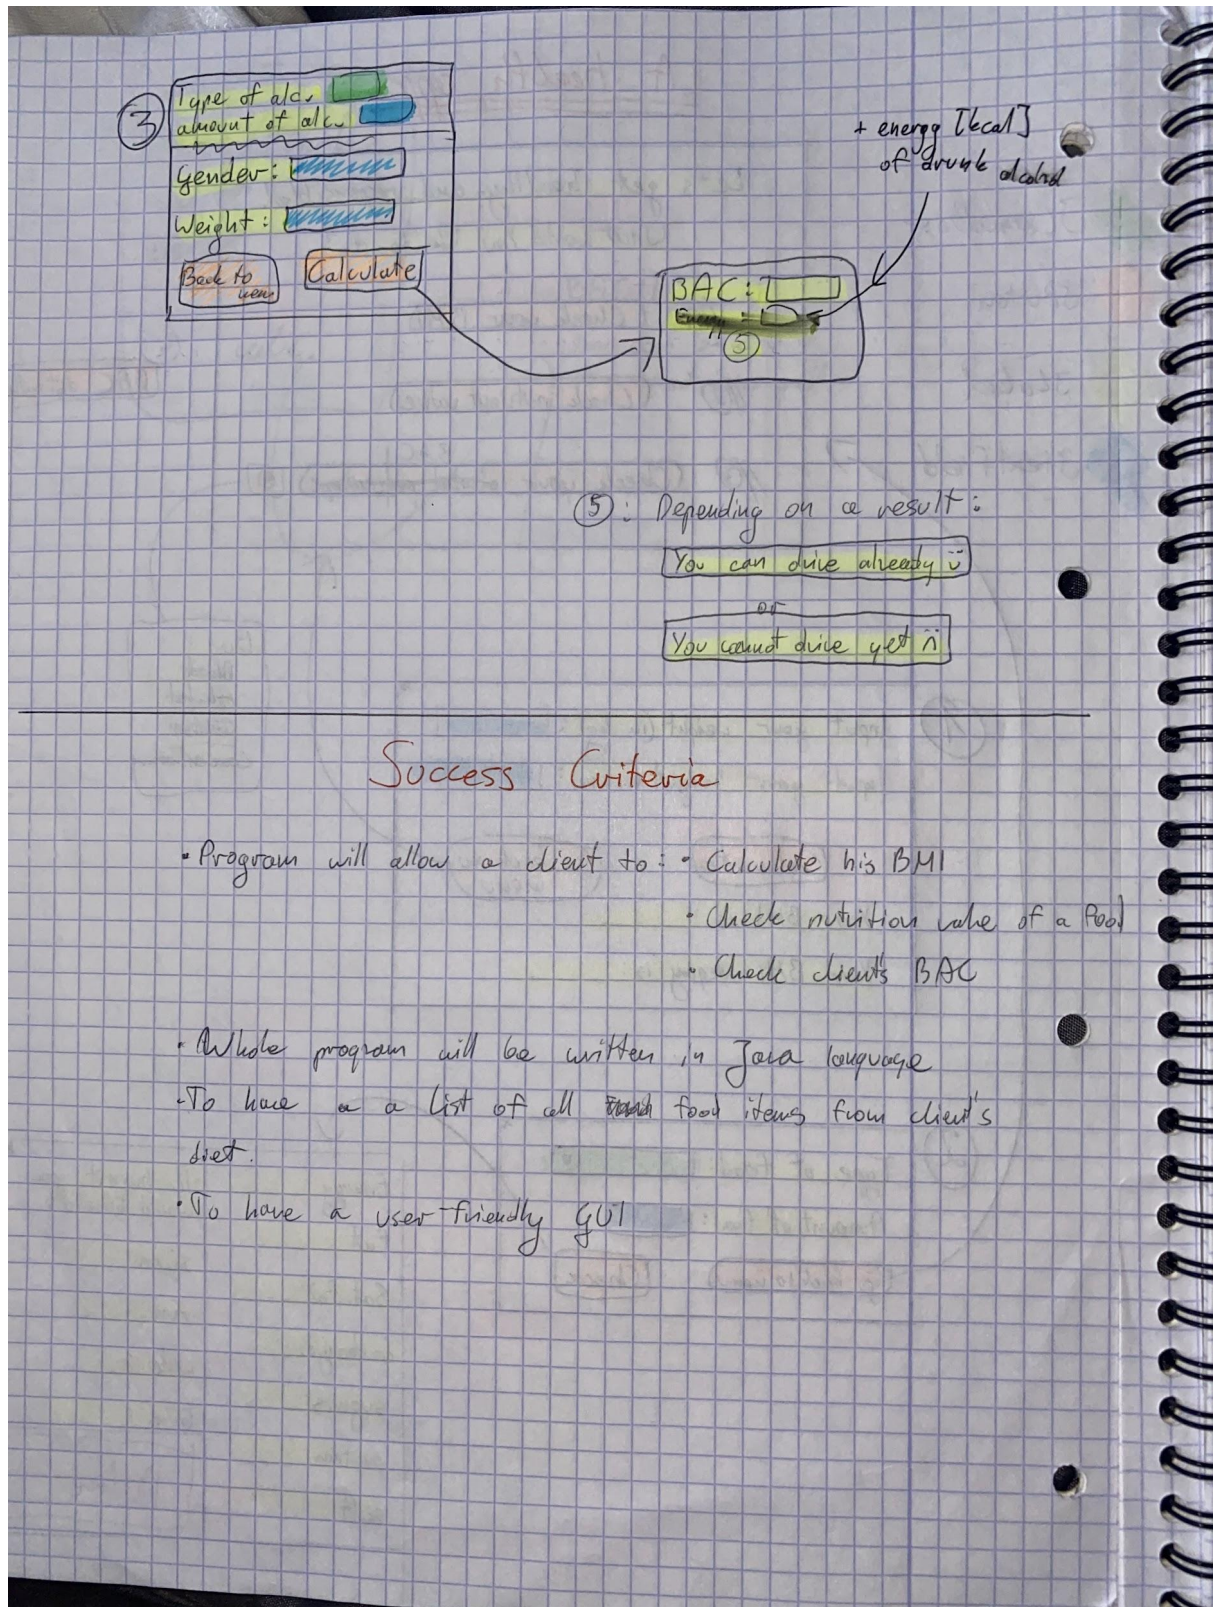 3
Type of alc.
amount of alc.
Gender:
Weight:
Back to
Calculate
+ energy [kcal]
of drunk alcohol
BAC:
Energy:
5
5: Depending on a result:
You can drive already
or
You cannot drive yet
Success Criteria
• Program will allow a client to: • Calculate his BMI
• Check nutrition value of a food
• Check client's BAC
• Whole program will be written in Java language
- To have a a list of all food items from client's
diet.
• To have a user-friendly GUI